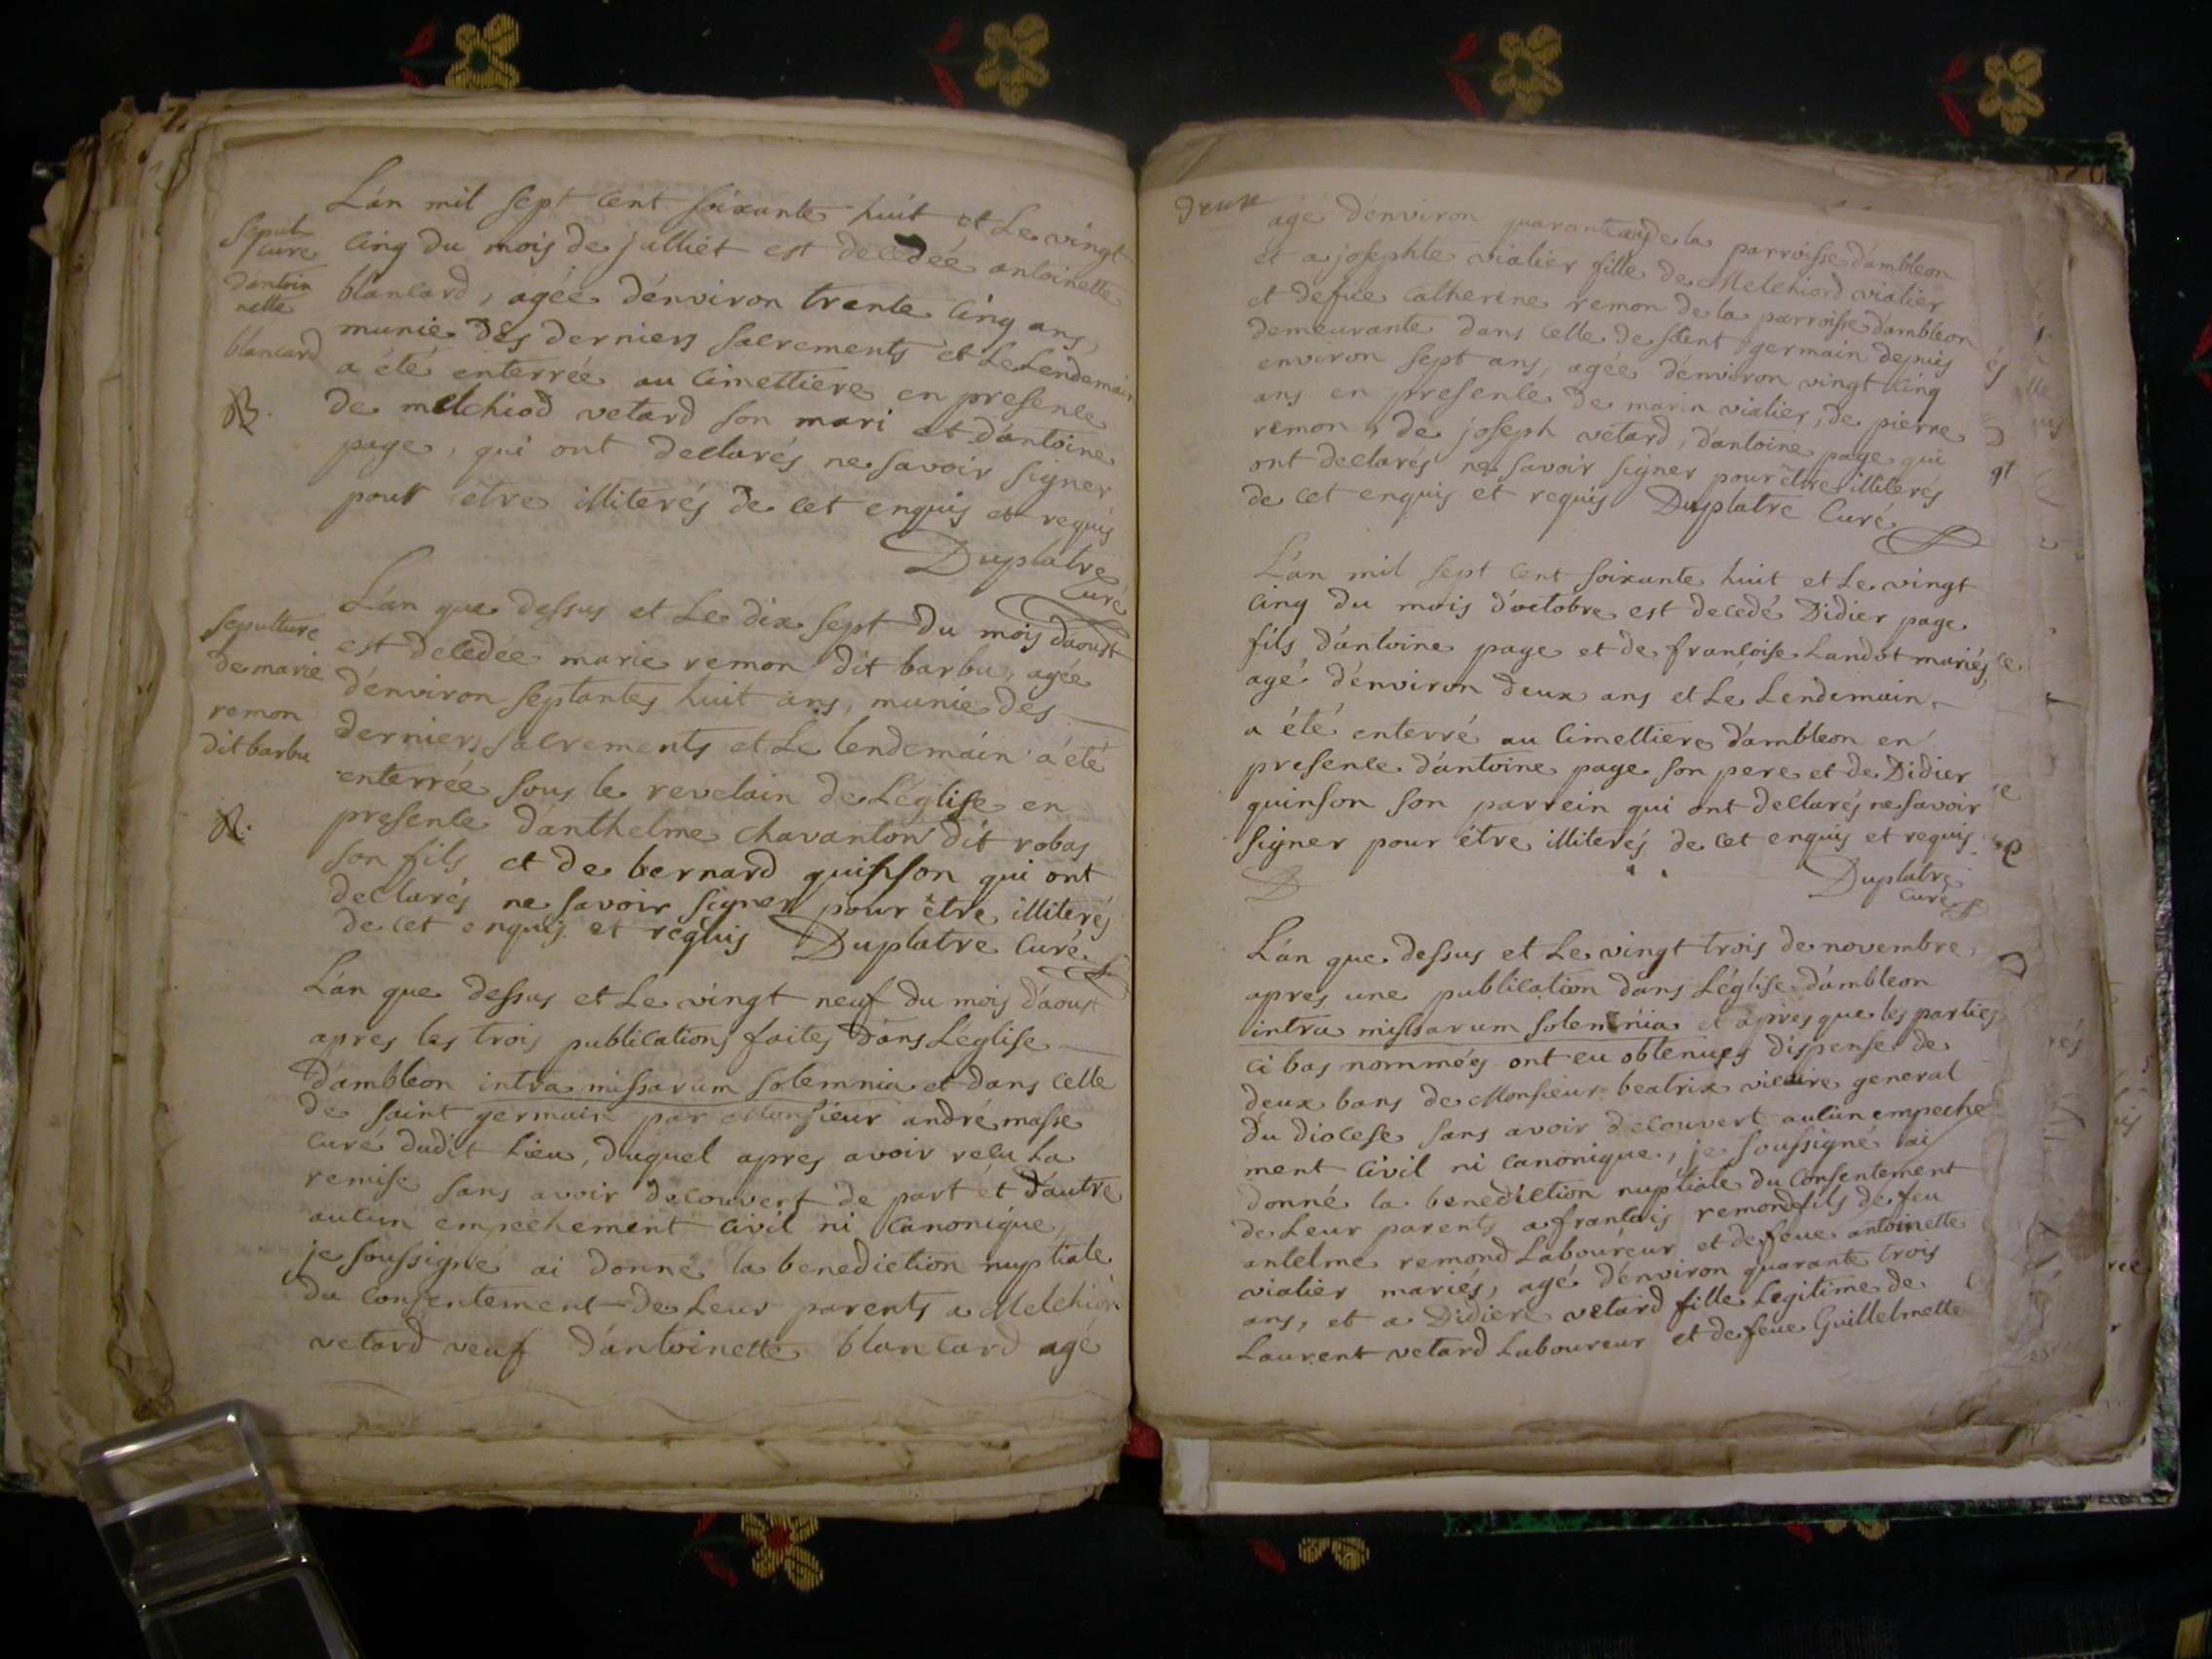 L'an mil sept cent soixante huit et Le vingt
sepulture
cinq du mois de julliet est decedée antoinette
d'antoinette
blancard, agée d'environ trente cinq ans,
blancard
munie des derniers sacrements et Le Lendemain
a été enterrée au cimettiere en presence
R.
de melchiod vetard son mari et d'antoine
page, qui ont declarés ne savoir signer
pour être illiterés de cet enquis et requis
Duplatre
Curé
L'an que dessus et Le dix sept du mois d'aoust
sepulture
est decedée marie remon dit barbu, agée
de marie
d'environ septantes huit ans, munie des
remon
derniers sacrements et Le lendemain a été
dit barbu
enterrée sous le revelain de L'église en
presence d'anthelme chavanton dit robas
R.
son fils et de bernard quinson qui ont
declarés ne savoir signer pour être illiterés
de cet enquis et requis Duplatre Curé
L'an que dessus et Le vingt neuf du mois d'aoust
apres les trois publications faites dans L'église
d'ambleon intra missarum solemnia et dans celle
de saint germain par Monsieur andré masse
curé dudit Lieu, duquel apres avoir recu La
remise sans avoir decouvert de part et d'autre
aucun empechement civil ni canonique,
je soussigné ai donné la benediction nuptiale
du consentement de Leur parents a Melchior
vetard veuf d'antoinette blancard agé
agé d'environ quarante ans de la parroisse d'ambleon
et a josephte vialier fille de Melchiord vialier
et de fue Catherine remon de la parroisse d'ambleon
demeurante dans celle de saint germain depuis
environ sept ans, agée d'environ vingt cinq
ans en presence de marin vialier, de pierre
remon, de joseph vetard, d'antoine page qui
ont declarés ne savoir signer pour être illiterés
de cet enquis et requis Duplatre Curé
L'an mil sept cent soixante huit et Le vingt
cinq du mois d'octobre est decedé Didier page
fils d'antoine page et de francoise Landot mariés,
agé d'environ deux ans et Le Lendemain
a été enterré au cimettiere d'ambleon en
presence d'antoine page son pere et de Didier
quinson son parrein qui ont declarés ne savoir
signer pour être illiterés de cet enquis et requis
Duplatre
Curé
L'an que dessus et Le vingt trois de novembre
apres une publication dans L'église d'ambleon
intra missarum solemnia et apres que les parties
ci bas nommées ont eu obtenues dispense de
deux bans de Monsieur beatrix vicaire general
du diocese sans avoir decouvert aucun empeche
ment civil ni canonique, je soussigné ai
donné la benediction nuptiale du consentement
de Leur parents a francais remond fils de feu
antelme remond Laboureur et de feue antoinette
vialier mariés, agé d'environ quarante trois
ans, et a Didiere vetard fille Legitime de
Laurent vetard Laboureur et de feue Guillelmette